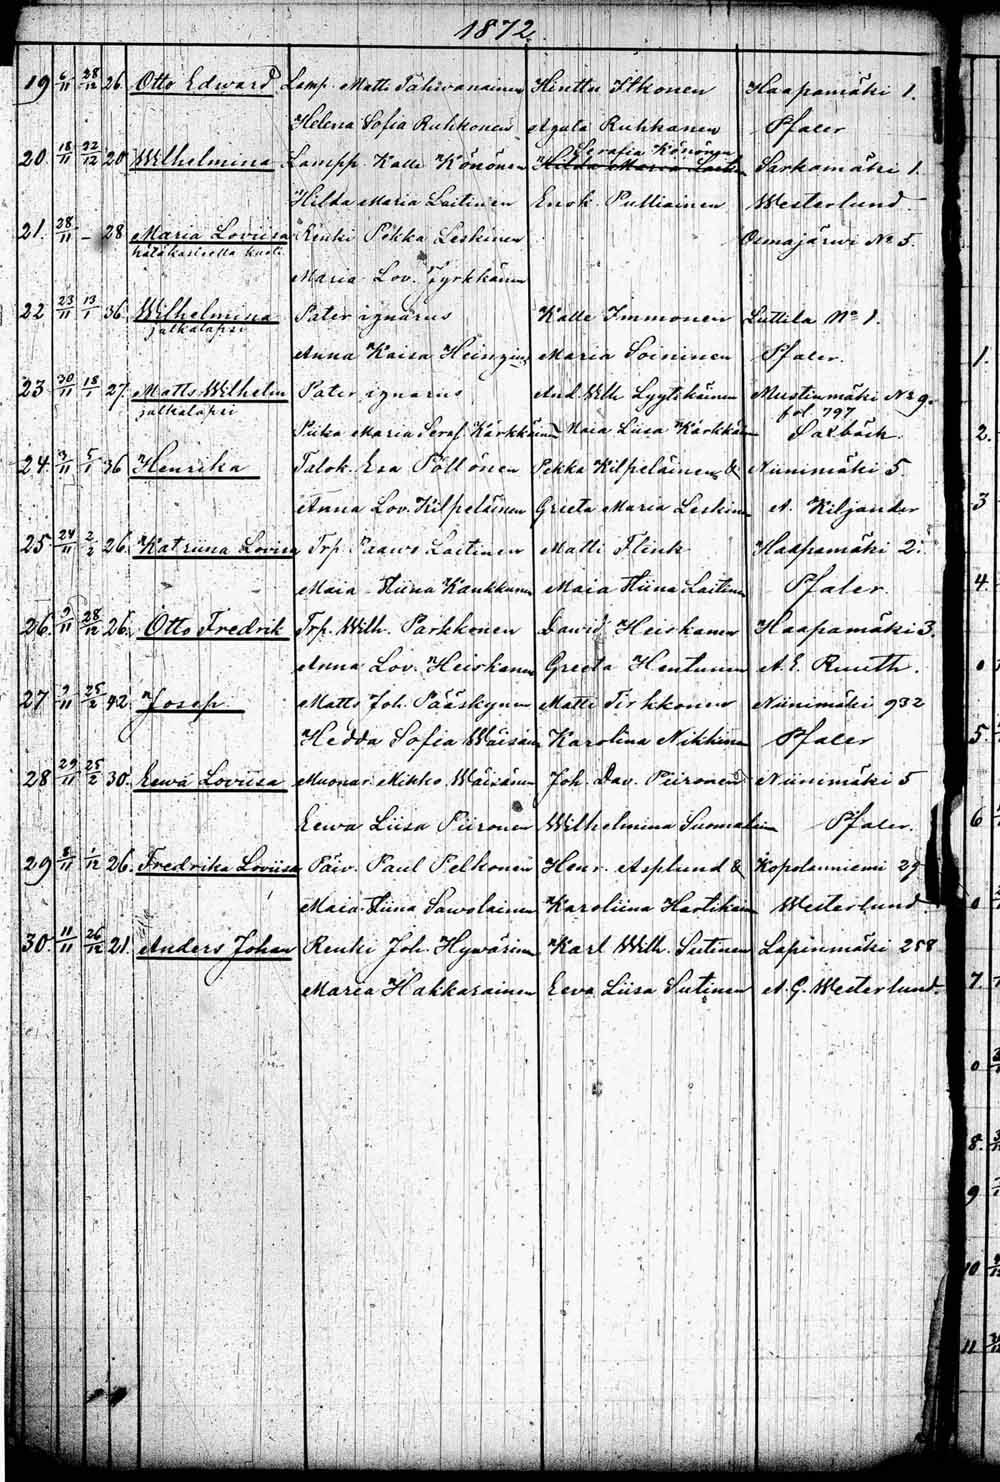 1872.
19 6/11 28/12 26. Otto Edward Lamp. Matts Tahvanainen Hinttu Itkonen Haapamäki 1.
Helena Sofia Ruhkonen Agata Ruhkanen Pfaler
Serafia Könönen
20. 18/11 22/12 20 Wilhelmina Lampp. Kalle Könönen Hilda Maria Laitin Sarkamäki 1.
Hilda Maria Laitinen Enok Pulliainen Westerlund.
21. 28/11 – 28 Maria Loviisa Renki Pekka Leskinen Osmajärwi No 5.
hätäkasteella kuoli
Maria Lov. Tyrkkänen
22 23/11 13/1 36. Wilhelmina Pater ignarus Kalle Immonen Luttila No 1.
jalkalapsi
Anna Kaisa Heingin Maria Soininen Pfaler.
23 30/11 18/1 27. Matts Wilhelm Pater ignarus And. Wilh Lyytikäinen Mustinmäki No 9.
jalkalapsi fol 797
Piika Maria Seraf. Kärkkäinen Maia Liisa Kärkkäin Saxbäck.
24. 3/11 5/1 36 Henrika Talok. Esa Pöllönen Pekka Kilpeläinen & Niinimäki 5.
Anna Lov. Kilpeläinen Greeta Maria Leskinen A. Kiljander
25 24/11 2/2 26. Katriina Lovisa Trp. Paawo Laitinen Matti Flink Haapamäki 2.
Maia Tiina Kaukkunen Maia Tiina Laitinen Pfaler.
26. 9/11 28/12 26. Otto Fredrik Trp. Wilh. Parkkonen Dawid Heiskanen Haapamäki 3.
Anna Lov. Heiskanen Greeta Hentunen A. E. Ruuth.
27 9/11 25/2 42. Josep. Matts Joh. Pääskynen Matti Tirkkonen Niinimäki 932
Hedda Sofia Wäisän Karolina Nikkinen Pfaler
28 29/11 25/2 30. Eewa Loviisa Muonar. Mikko Wäisänen Joh. Dav. Piironen Niinimäki 5
Eewa Liisa Piironen Wilhelmina Suomalain Pfaler.
29 8/11 1/12 26. Fredrika Loviisa Päiv. Paul Pelkonen Henr. Asplund & Kopolanniemi 29
Maia Tiina Sawolainen Karoliina Hartikain Westerlund
30 11/11 26/12 21. Anders Johan Renki Joh. Hywärinen Karl Wilh. Sutinen Lapinmäki 258
Maria Hakkarainen Eeva Liisa Sutinen A. G. Westerlund.